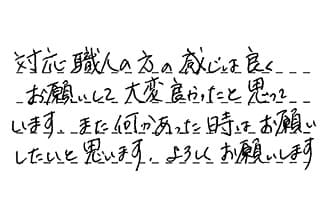 対応職人の方の感じは良く
お願いして大変良かったと思って
います。また何かあった時はお願い
したいと思います。よろしくお願いします